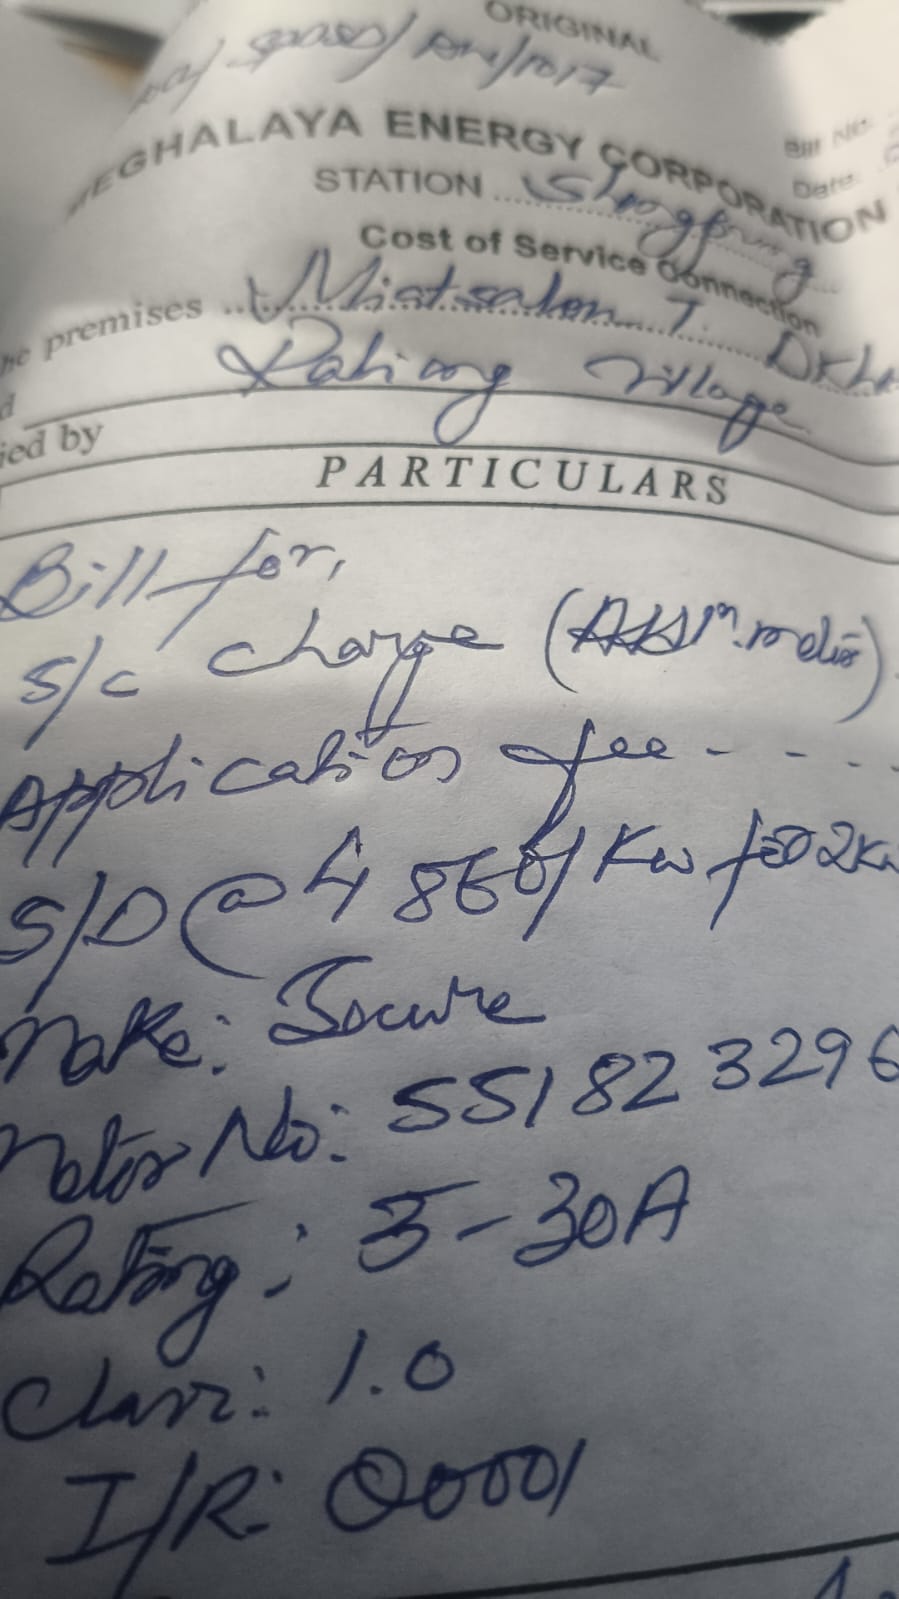 ORIGINAL
MEGHALAYA ENERGY CORPORATION
Bill No.
Date
STATION
Cost of Service Connection
he premises ... T. Dkha
Village
ied by
PARTICULARS
Bill for,
S/c charge
Application fee - - - -
S/D @ /Kw for 2Kw
Make: Secure
Meter No: 551823296
Rating: 5-30A
Class: 1.0
I/R: 00001